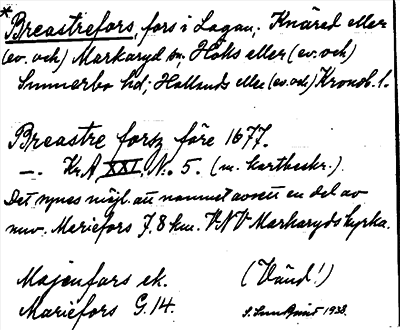 * Breastrefors, fors i Lagan, Knäred eller
(ev. och) Markaryd sn, Höks eller (ev. och)
Sunnerbo hd; Hallands eller (ev. och) Kronob. l.
Breastre forsz före 1677.
—.— KrA XXI. No. 5. (m. kartbeskr.).
Det synes möjl. att namnet avsett en del av
nuv. Meriefors 7.8 km. VNV Markaryds kyrka.
Majenfors ek. (Vänd!)
Mariefors G. 14. 1938.